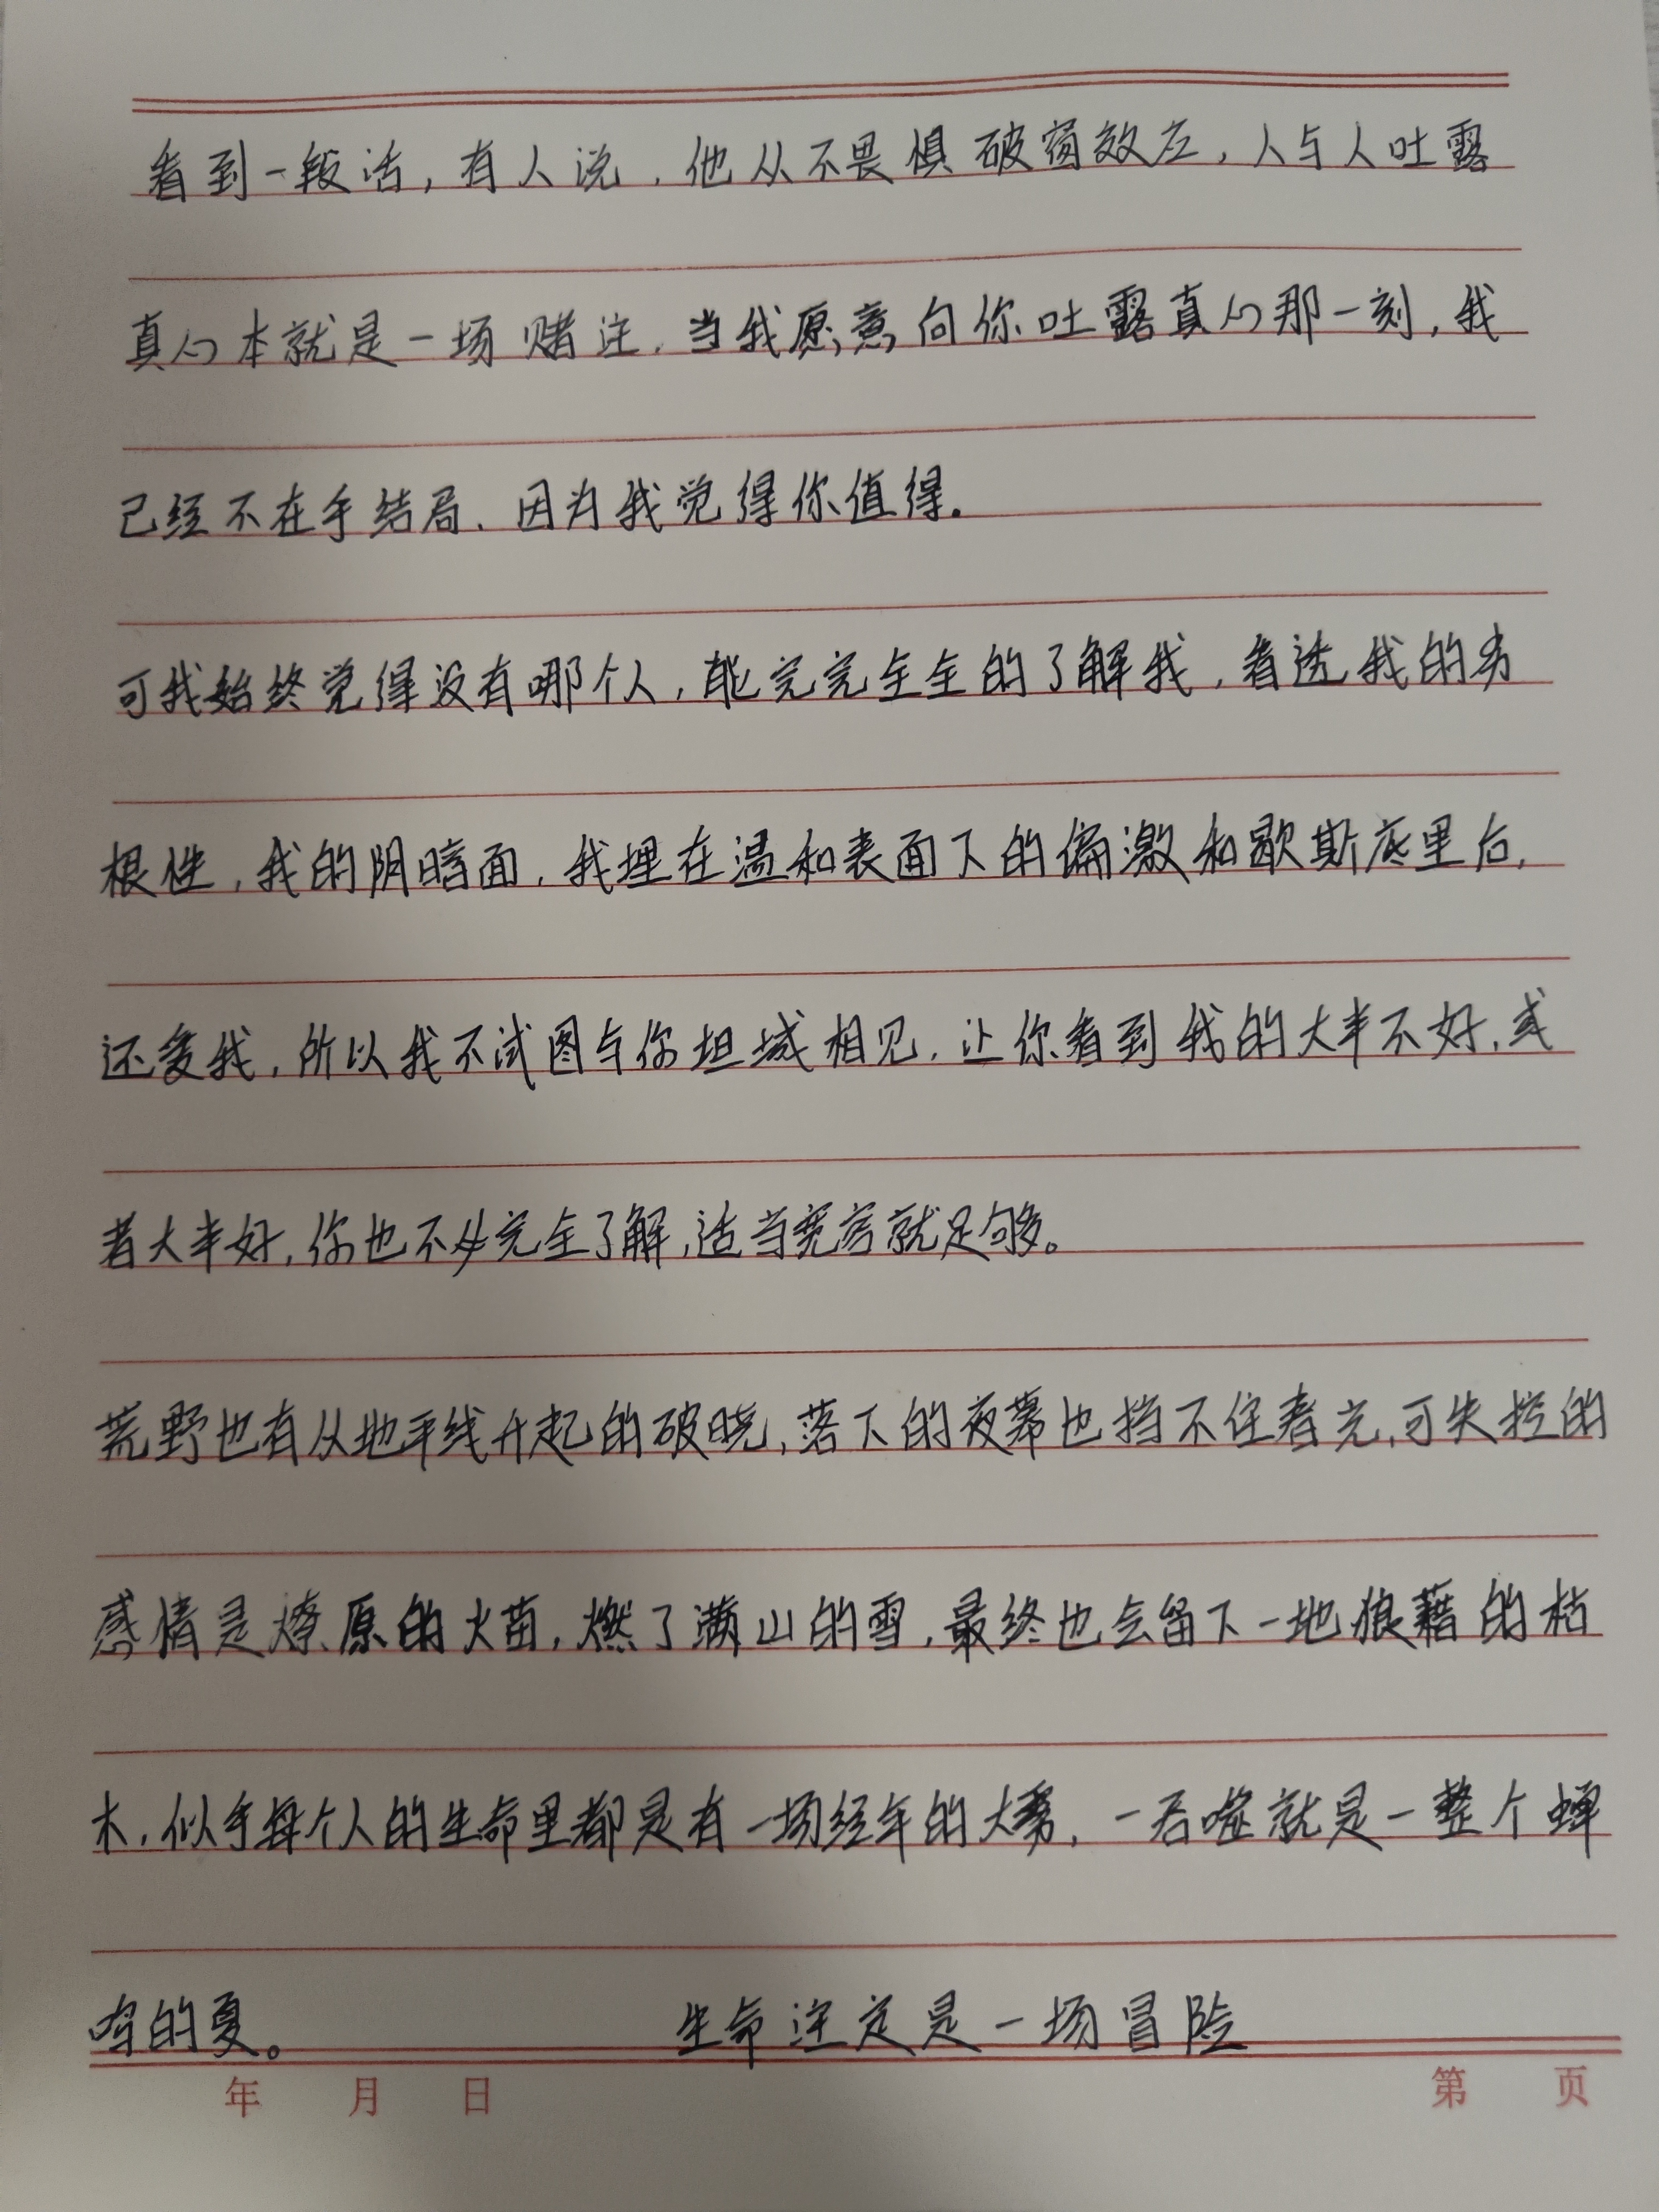 看到一段话，有人说，他从不畏惧破窗效应，人与人吐露
真心本就是一场赌注，当我愿意向你吐露真心那一刻，我
已经不在乎结局，因为我觉得你值得。
可我始终觉得没有哪个人，能完完全全的了解我，看透我的劣
根性，我的阴暗面，我埋在温和表面下的偏激和歇斯底里后，
还爱我，所以我不试图与你坦诚相见，让你看到我的大半不好，或
者大半好，你也不必完全了解，适当宽容就足够。
荒野也有从地平线升起的破晓，落下的夜幕也挡不住春光，可失控的
感情是燎原的火苗，燃了满山的雪，最终也会留下一地狼藉的枯
木，似乎每个人的生命里都是有一场经年的大雾，一吞噬就是一整个蝉
鸣的夏。 生命注定是一场冒险
年 月 日 第 页